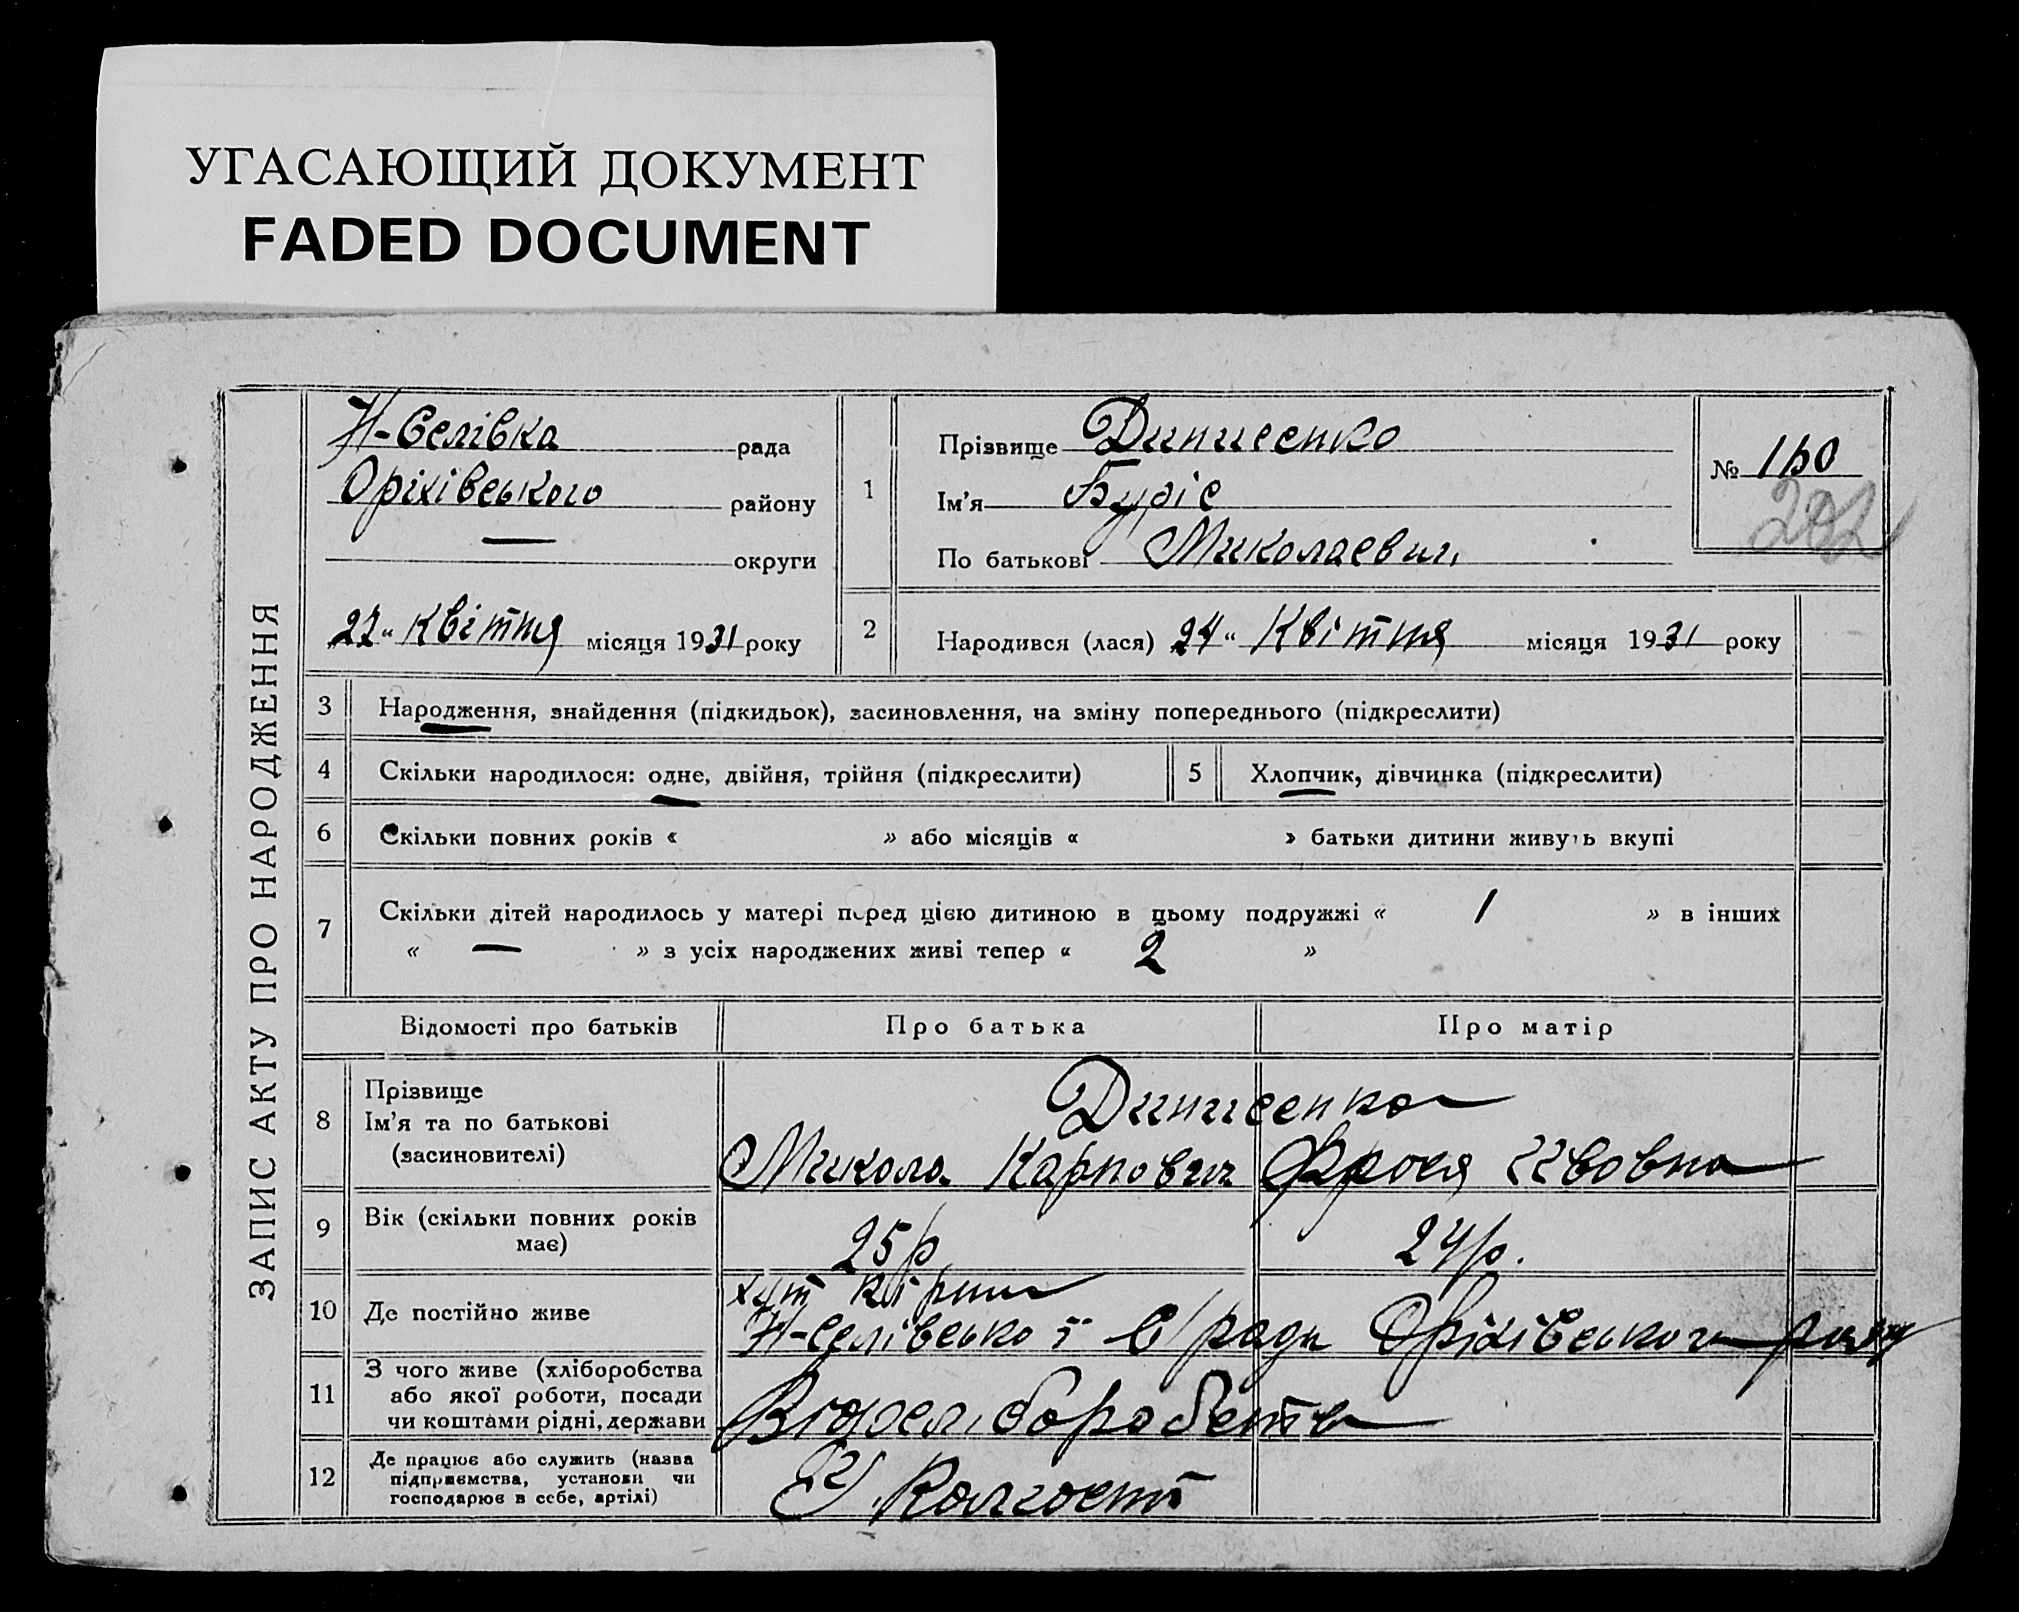 УГАСАЮЩИЙ ДОКУМЕНТ
FADED DOCUMENT
ЗАПИС АКТУ ПРО НАРОДЖЕННЯ
Н-Єслівка рада
Оріхівського району
— округи
1
Прізвище Дипиеенко
Ім'я Буріс
По батькові Миколаевич
№ 150
202
22 „ Квітня місяця 1931 року
2 Народився (лася) 24 „ Квітня місяця 1931 року
3 Народження, знайдення (підкидьок), засиновлення, на зміну попереднього (підкреслити)
4 Скільки народилося: одне, двійня, трійня (підкреслити)
5 Хлопчик, дівчинка (підкреслити)
6 Скільки повних років « » або місяців « » батьки дитини живуть вкупі
7 Скільки дітей народилось у матері перед цією дитиною в цьому подружжі « 1 » в інших
« — » з усіх народжених живі тепер « 2 »
Відомості про батьків Про батька Про матір
8 Прізвище
Ім'я та по батькові
(засиновителі)
Дипиеенко
Микола Карпович Фрося Львовна
9 Вік (скільки повних років
має)
25 р 24 р.
10 Де постійно живе
хут
Н-Єслівської с/ради Оріхівського р-ну
11 З чого живе (хліборобства
або якої роботи, посади
чи коштами рідні, держави
12 Де працює або служить (назва
підприємства, установи чи
господарює в себе, артілі)
У Колгоспі